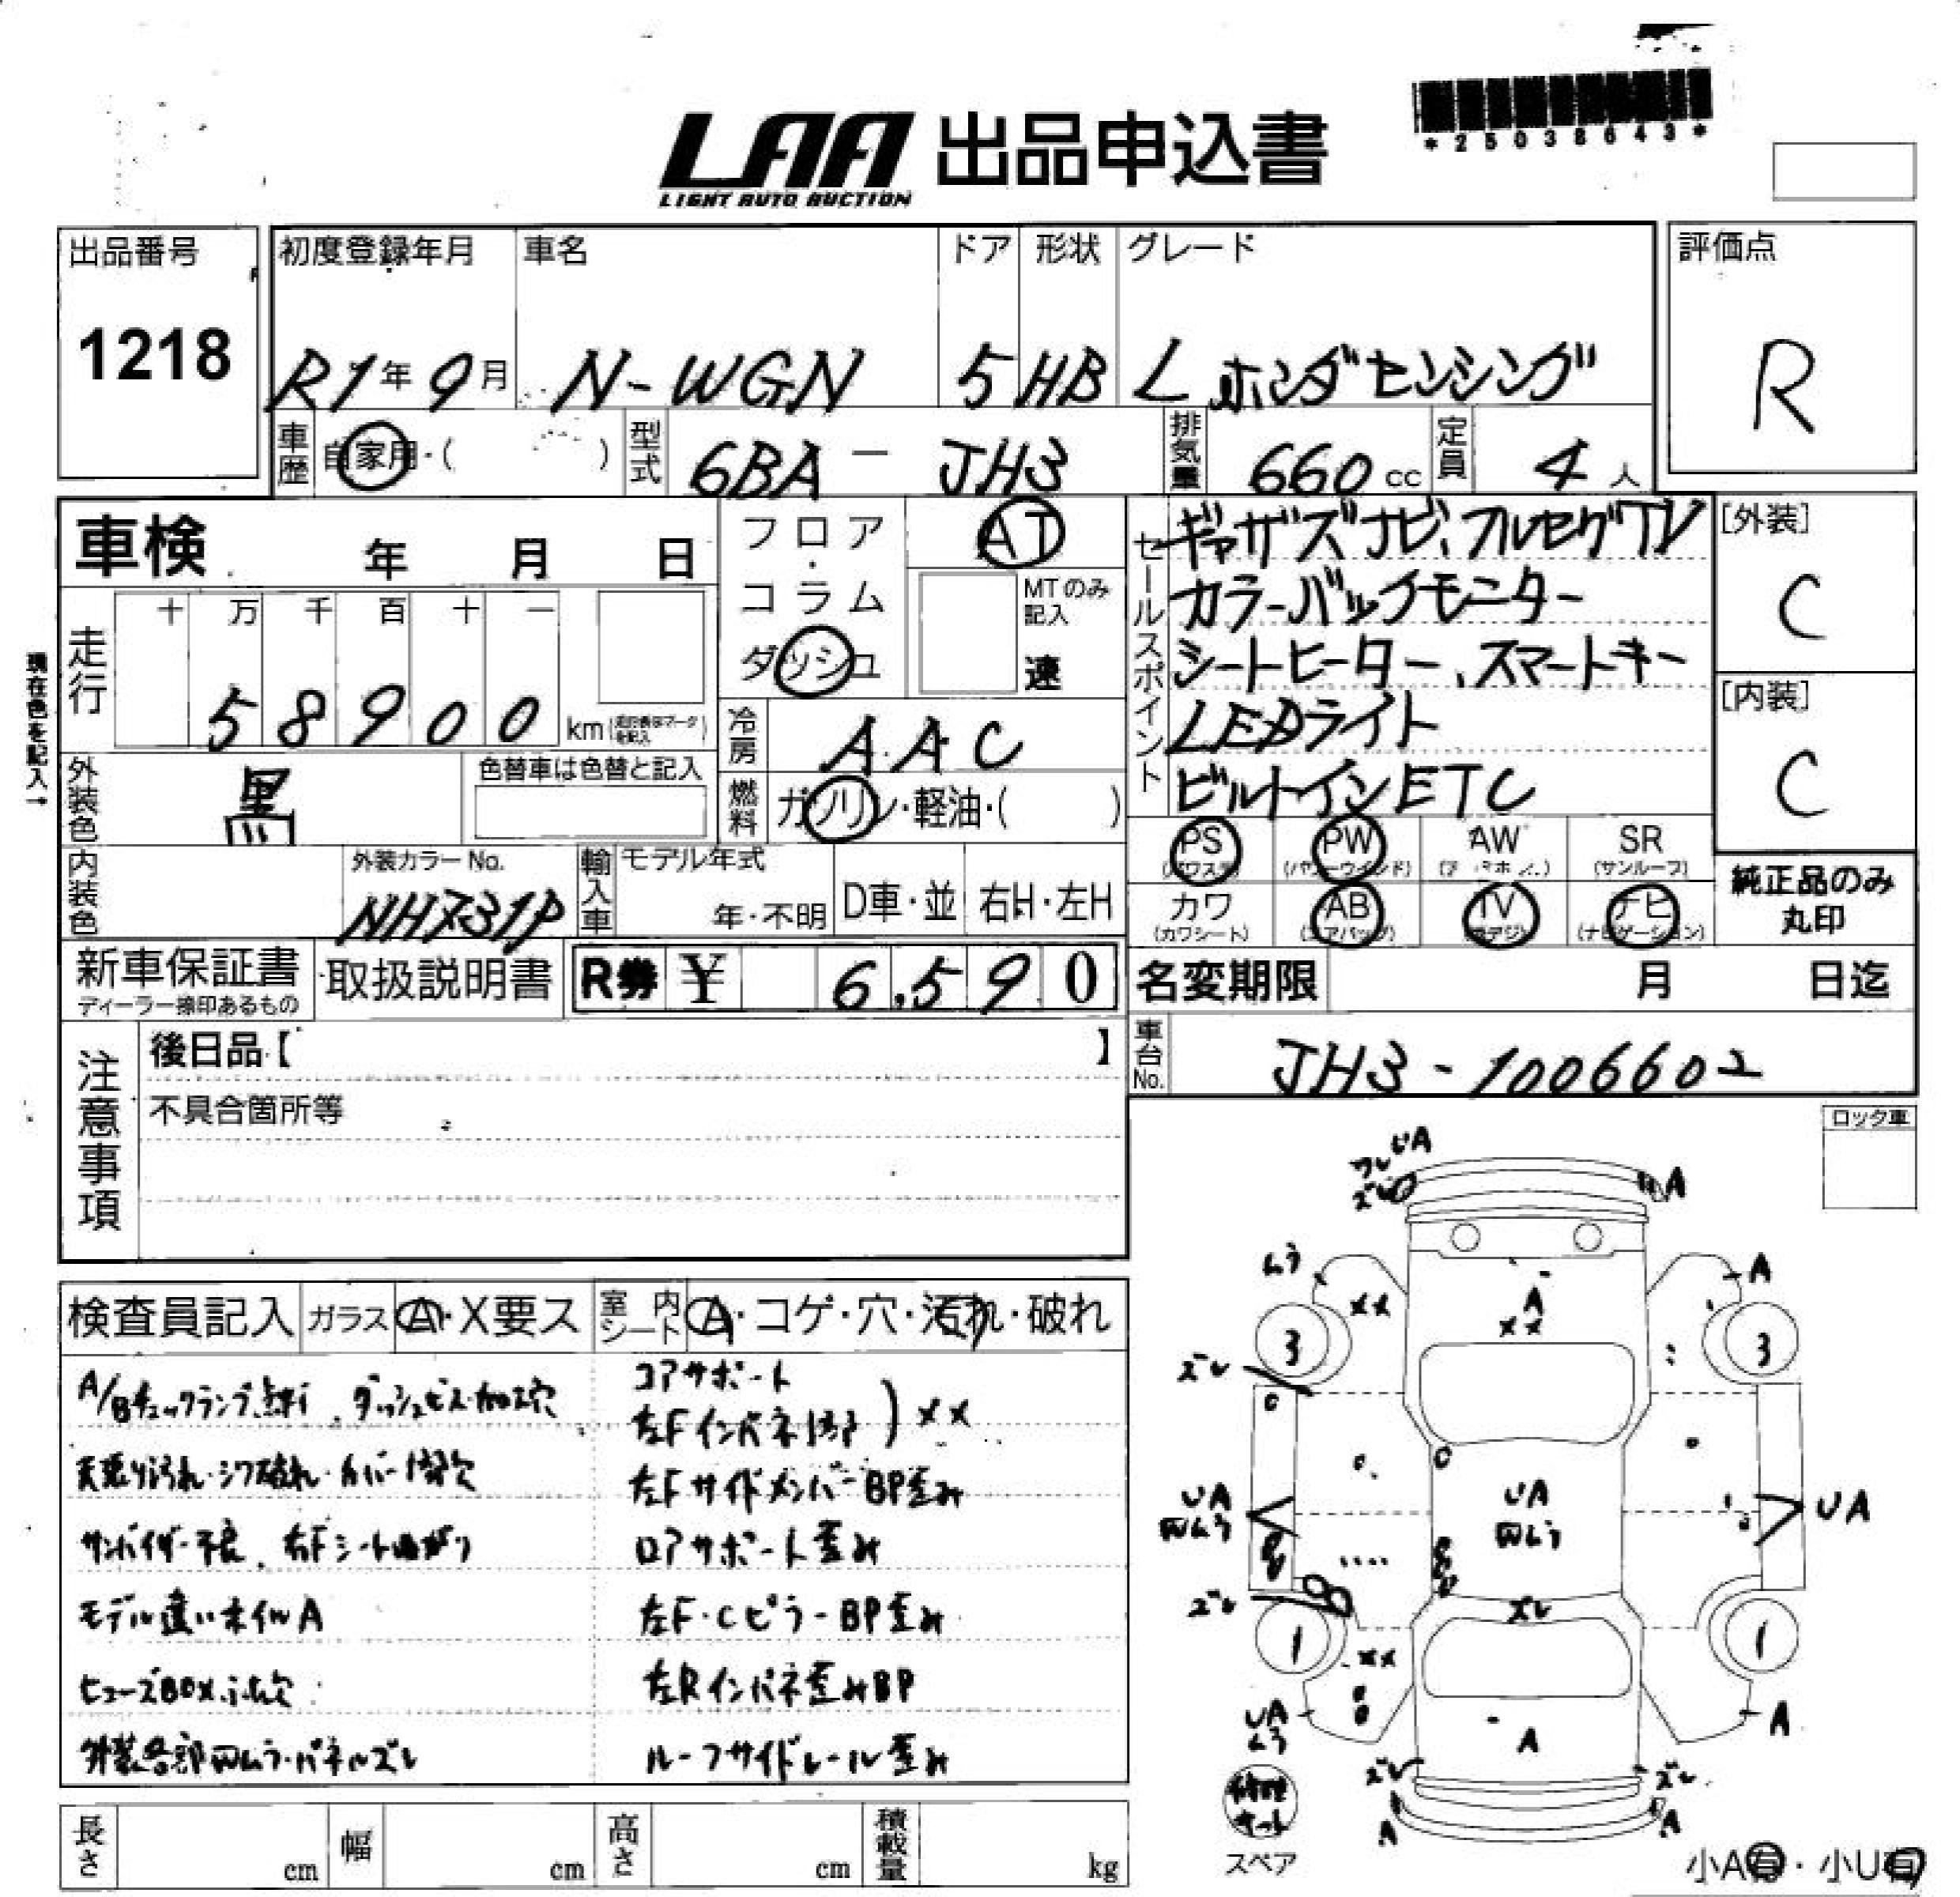 *25038643*
LAA 出品申込書
LIGHT AUTO AUCTION
出品番号 初度登録年月 車名 ドア 形状 グレード 評価点
1218 R1年9月 N-WGN 5 HB L ホンダセンシング R
車歴 自家用・( ) 型式 6BA - JH3 排気量 660cc 定員 4人
車検 年 月 日
フロア・コラム ダッシュ
AT
MTのみ記入
速
セールスポイント
ギャザズナビ、フルセグTV
カラーバックモニター
シートヒーター、スマートキー
LEDライト
ビルトインETC
[外装]
C
[内装]
C
現在色を記入→
走行 十 万 千 百 十 一
58900 km
冷房 AAC
外装色 黒 色替車は色替と記入
燃料 ガソリン・軽油・( )
PS PW AW SR
(サンルーフ)
カワ AB TV ナビ
(カワシート) (エアバッグ) (ナビゲーション)
純正品のみ
丸印
内装色 外装カラーNo. NH731P
輸入車 モデル年式 年・不明 D車・並 右H・左H
新車保証書 取扱説明書 R券 ¥ 6,590
ディーラー捺印あるもの
名変期限 月 日迄
車台No. JH3-1006602
注意事項
後日品【 】
不具合箇所等
ロック車
検査員記入 ガラス A・X要ス 室内シート A・コゲ・穴・汚れ・破れ
A/Bチェックランプ点灯、ダッシュビス・加工穴
天張り汚れ・シワ破れ・カバー1部欠
サンバイザー不良、右Fシート曲がり
モデル違いホイルA
ヒューズBOXふた欠
外装各部凹ムラ・パネルズレ
コアサポート
左Fインパネ1部 ) XX
左Fサイドメンバー BP歪み
ロアサポート歪み
左F・Cピラー BP歪み
左Rインパネ歪みBP
ルーフサイドレール歪み
UA
ワレ
ズレ
A
ムラ
A
XX
A
XX
3
3
ズレ
UA
凹ムラ
UA
凹ムラ
UA
ズレ
XV
1
1
XX
UA
ムラ
A
A
ズレ
ズレ
A
A
修理
キット
スペア
小A有・小U有
長さ cm 幅 cm 高さ cm 積載量 kg